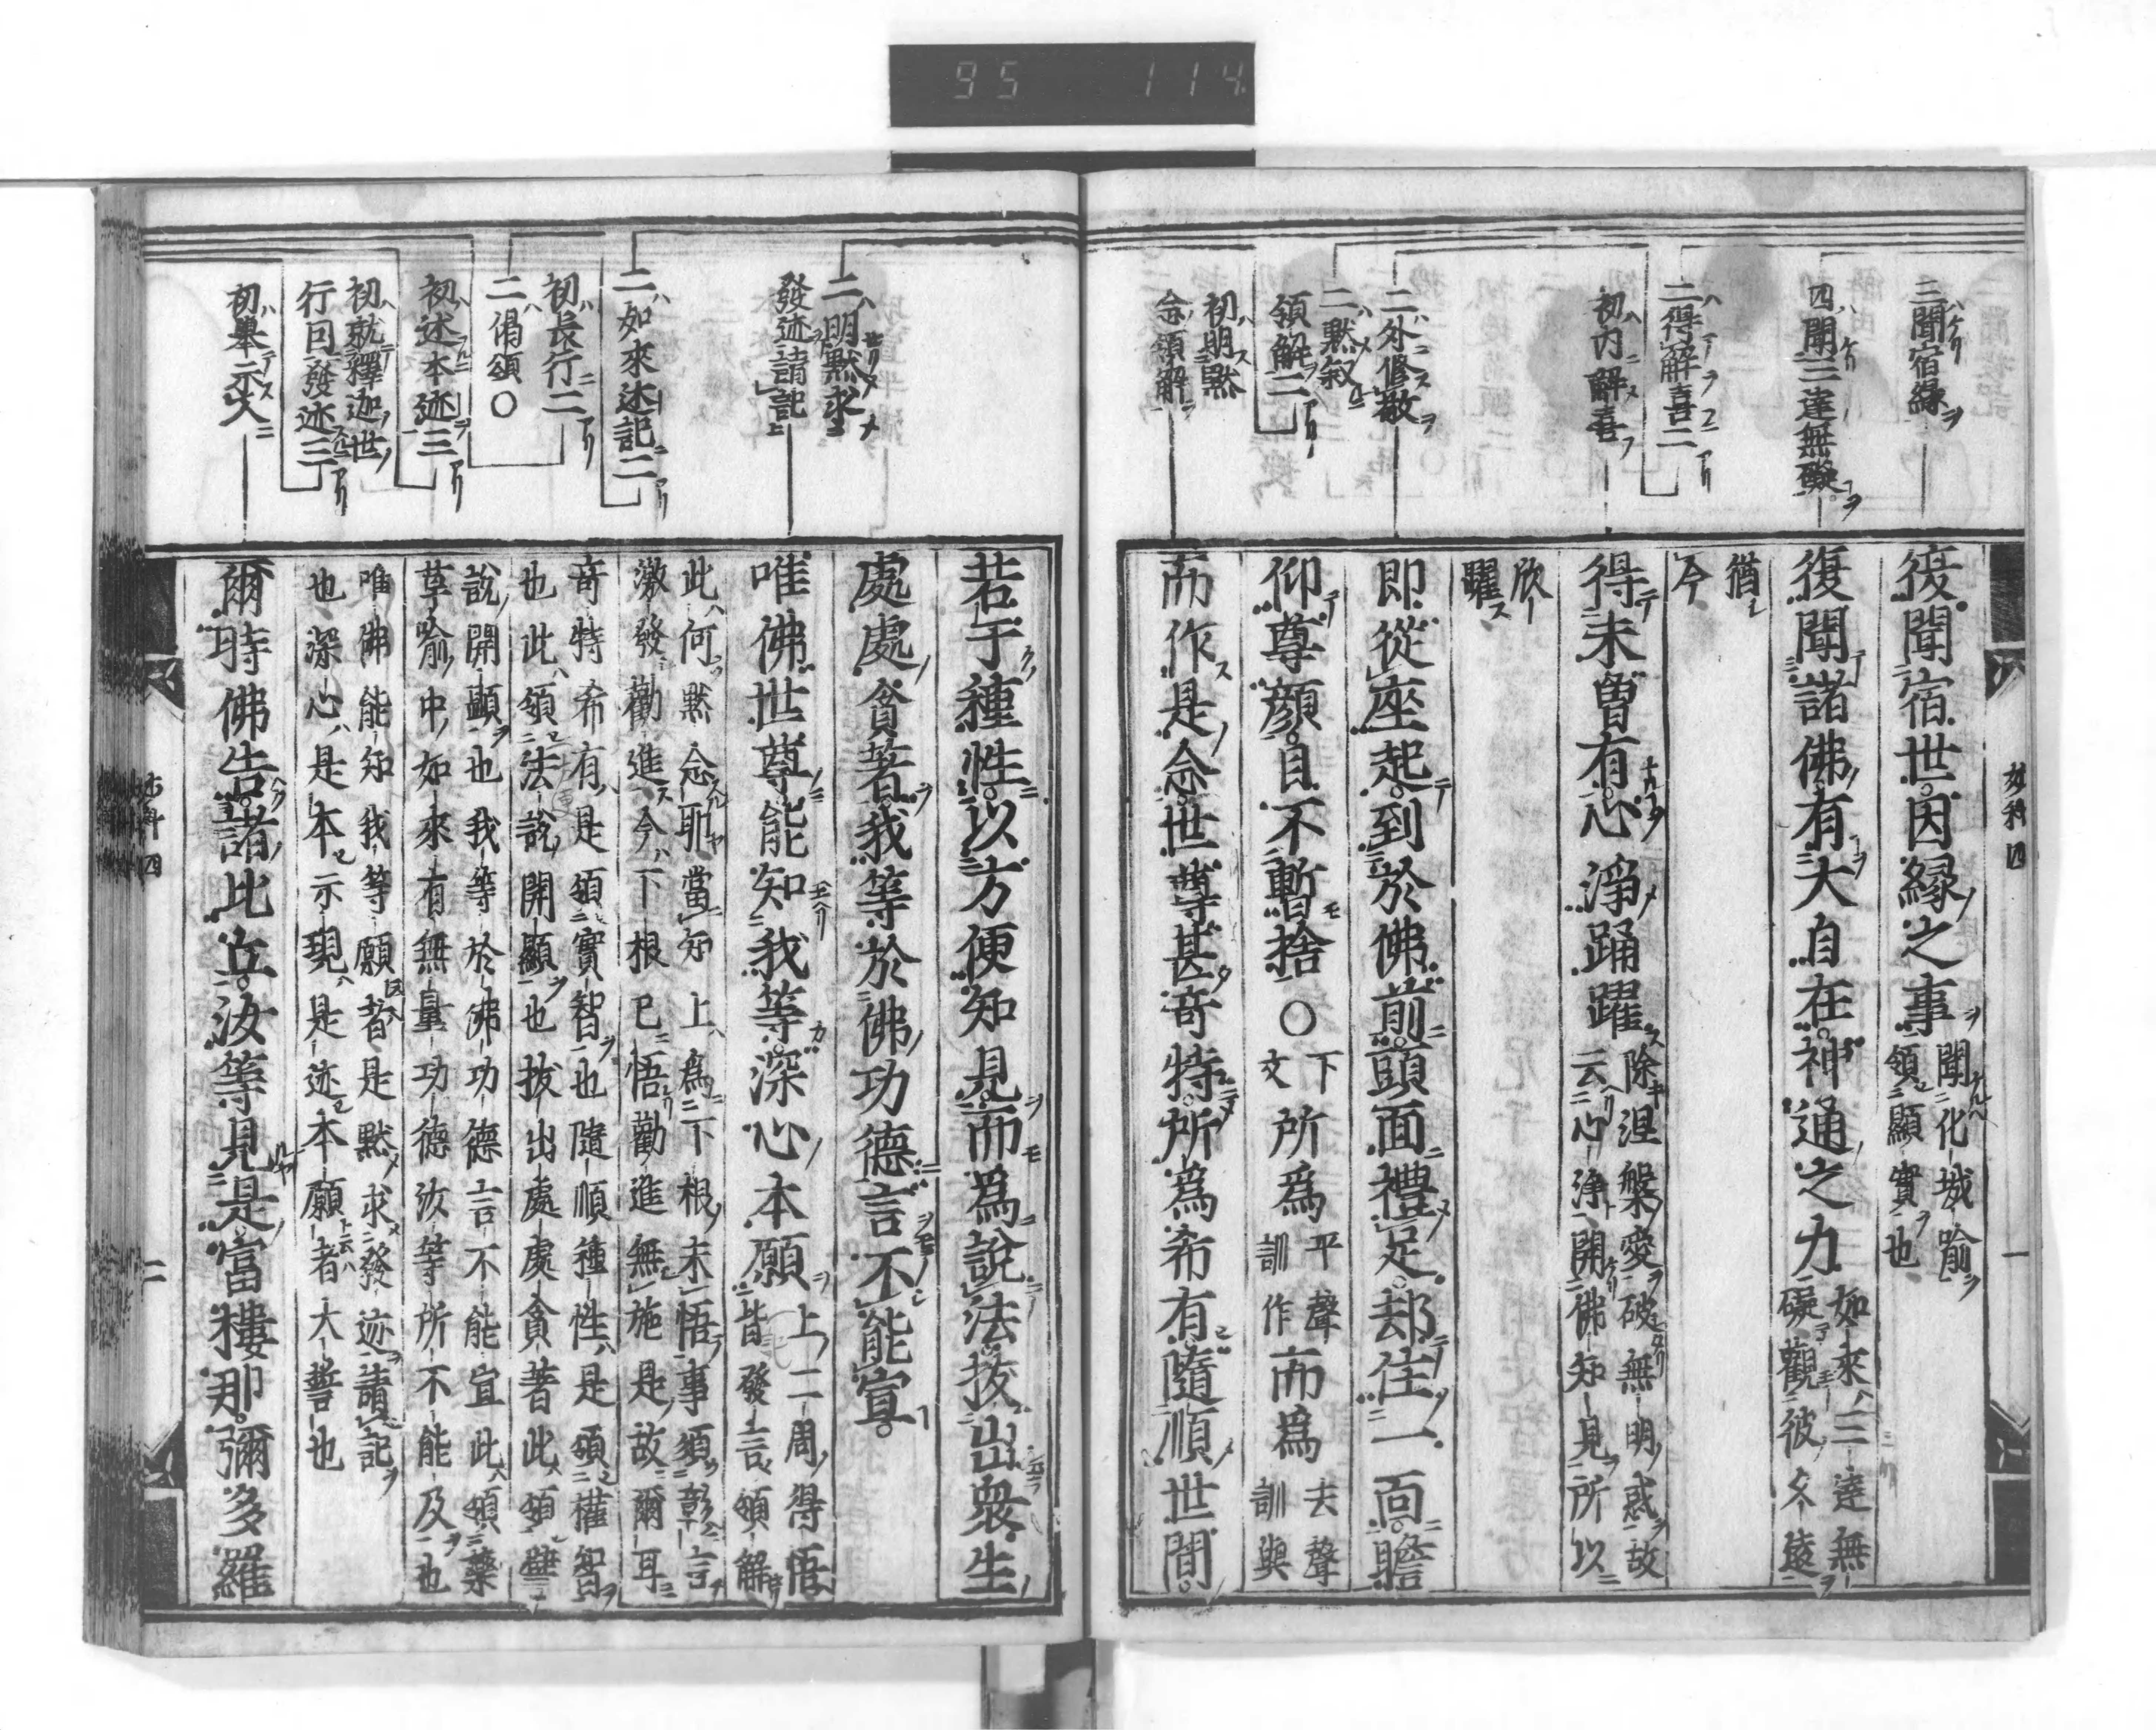 95 114
三聞宿緣
四聞三達無礙
二得解喜二
初内解喜
二外修敬
二默叙
領解二
初明默
念領解
復聞宿世因緣之事
聞化城喻
領顯實也
復聞諸佛有大自在神通之力
如來三達無
礙觀彼久遠
猶
今
得未曾有心淨踊躍
除涅槃愛破無明惑故
云心淨開佛知見所以
欣
躍
即從座起到於佛前頭面禮足却住一面瞻
仰尊顏目不暫捨〇下文所爲平聲訓作而爲去聲訓與
而作是念世尊甚奇特所爲希有隨順世間
妙科四
一
二明默求
發迹請記
二如來述記二
初長行二
二偈頌〇
初述本迹三
初就釋迦世
行因發迹三
初舉示人
若干種性以方便知見而爲說法拔出衆生
處處貪著我等於佛功德言不能宣
唯佛世尊能知我等深心本願
上二周得悟
皆發言領解
此何默念耶當知上爲下根未悟事須彰言
激發勸進今下根已悟勸進無施是故爾耳
奇特希有是領實智也隨順種性是領權智
也此領法說開顯也拔出處處貪著此領譬
說開顯也我等於佛功德言不能宣此領藥
草喻中如來有無量功德汝等所不能及也
唯佛能知我等願者是默求發迹請記
也深心是本示現是迹本願者大誓也
爾時佛告諸比丘汝等見是富樓那彌多羅
二